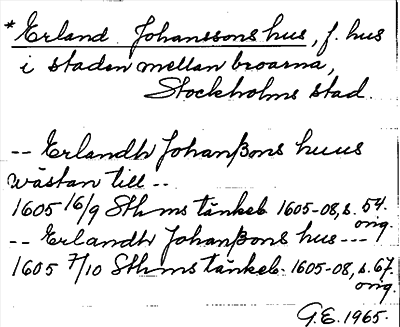 *Erland Johanssons hus, f. hus
i staden mellan broarna,
Stockholms stad.
-- Erlandh Johanßons huus
wästan till --
1605 16/9 Sthms tänkeb 1605-08, s. 54.
orig.
-- Erlandh Johanßons hus ---
1605 7/10 Sthms tänkeb. 1605-08, s. 67.
orig.
G.E. 1965.